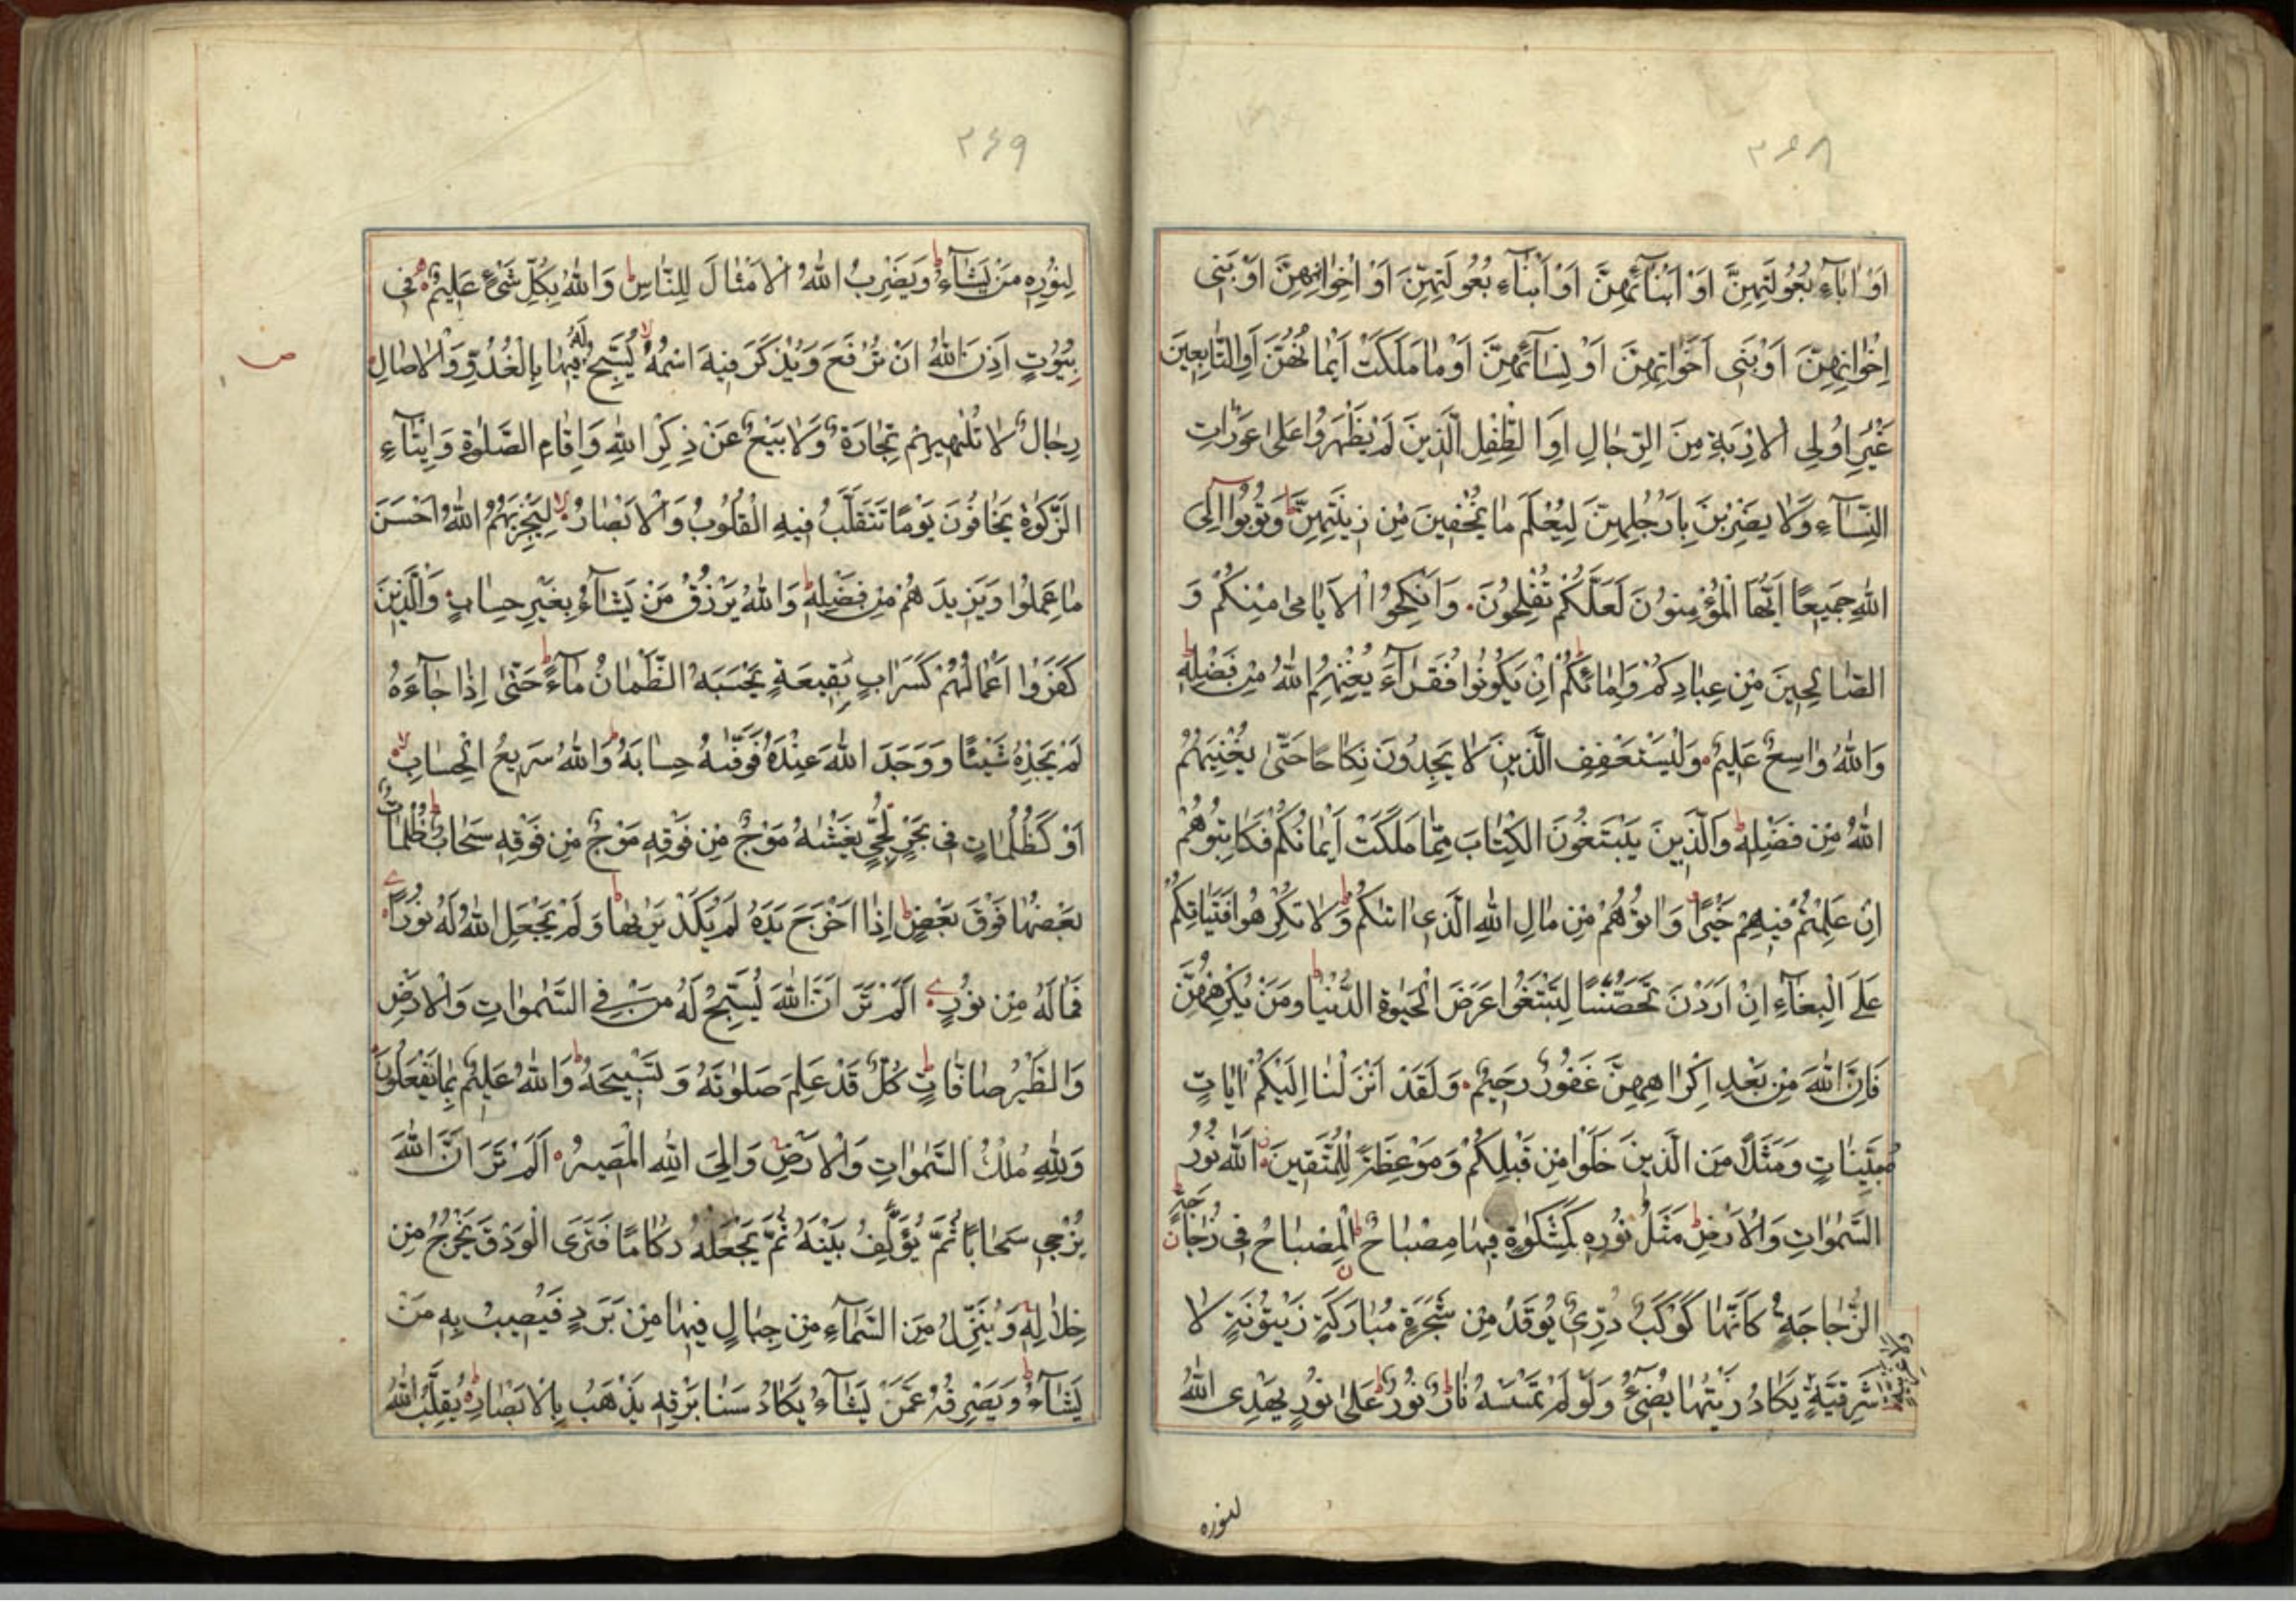 ٣٦٨
اَوْ اٰبَآءِ بُعُولَتِهِنَّ اَوْ اَبْنَآئِهِنَّ اَوْ اَبْنَآءِ بُعُولَتِهِنَّ اَوْ اِخْوٰانِهِنَّ اَوْ بَنِى
اِخْوٰانِهِنَّ اَوْ بَنِى اَخَوٰاتِهِنَّ اَوْ نِسَآئِهِنَّ اَوْ مٰا مَلَكَتْ اَيْمٰانُهُنَّ اَوِ التّٰابِعِينَ
غَيْرِ اُولِى الْاِرْبَةِ مِنَ الرِّجٰالِ اَوِ الطِّفْلِ الَّذِينَ لَمْ يَظْهَرُوا عَلىٰ عَوْرٰاتِ
النِّسَآءِ وَلٰا يَضْرِبْنَ بِاَرْجُلِهِنَّ لِيُعْلَمَ مٰا يُخْفِينَ مِنْ زِينَتِهِنَّ ط وَتُوبُوا اِلَى
اللّٰهِ جَمِيعًا اَيُّهَا الْمُؤْمِنُونَ لَعَلَّكُمْ تُفْلِحُونَ وَاَنْكِحُوا الْاَيٰامىٰ مِنْكُمْ وَ
الصّٰالِحِينَ مِنْ عِبٰادِكُمْ وَاِمٰائِكُمْ ط اِنْ يَكُونُوا فُقَرٰآءَ يُغْنِهِمُ اللّٰهُ مِنْ فَضْلِهِ ط
وَاللّٰهُ وٰاسِعٌ عَلِيمٌ وَلْيَسْتَعْفِفِ الَّذِينَ لٰا يَجِدُونَ نِكٰاحًا حَتّىٰ يُغْنِيَهُمُ
اللّٰهُ مِنْ فَضْلِهِ ط وَالَّذِينَ يَبْتَغُونَ الْكِتٰابَ مِمّٰا مَلَكَتْ اَيْمٰانُكُمْ فَكٰاتِبُوهُمْ
اِنْ عَلِمْتُمْ فِيهِمْ خَيْرًا وَاٰتُوهُمْ مِنْ مٰالِ اللّٰهِ الَّذِى اٰتٰىكُمْ ط وَلٰا تُكْرِهُوا فَتَيٰاتِكُمْ
عَلَى الْبِغٰآءِ اِنْ اَرَدْنَ تَحَصُّنًا لِتَبْتَغُوا عَرَضَ الْحَيٰوةِ الدُّنْيٰا ط وَمَنْ يُكْرِهْهُنَّ
فَاِنَّ اللّٰهَ مِنْ بَعْدِ اِكْرٰاهِهِنَّ غَفُورٌ رَحِيمٌ وَلَقَدْ اَنْزَلْنٰا اِلَيْكُمْ اٰيٰاتٍ
مُبَيِّنٰاتٍ وَمَثَلًا مِنَ الَّذِينَ خَلَوْا مِنْ قَبْلِكُمْ وَمَوْعِظَةً لِلْمُتَّقِينَ اَللّٰهُ نُورُ
السَّمٰوٰاتِ وَالْاَرْضِ ط مَثَلُ نُورِهِ كَمِشْكٰوةٍ فِيهٰا مِصْبٰاحٌ ط اَلْمِصْبٰاحُ فِى زُجٰاجَةٍ
الزُّجٰاجَةُ كَاَنَّهٰا كَوْكَبٌ دُرِّىٌّ يُوقَدُ مِنْ شَجَرَةٍ مُبٰارَكَةٍ زَيْتُونَةٍ لٰا
شَرْقِيَّةٍ يَكٰادُ زَيْتُهٰا يُضِىٓءُ وَلَوْ لَمْ تَمْسَسْهُ نٰارٌ ط نُورٌ عَلىٰ نُورٍ يَهْدِى اللّٰهُ
لنوره
٣٤٩
لِنُورِهِ مَنْ يَشٰآءُ ط وَيَضْرِبُ اللّٰهُ الْاَمْثٰالَ لِلنّٰاسِ ط وَاللّٰهُ بِكُلِّ شَىْءٍ عَلِيمٌ فِى
بُيُوتٍ اَذِنَ اللّٰهُ اَنْ تُرْفَعَ وَيُذْكَرَ فِيهَا اسْمُهُ لا يُسَبِّحُ لَهُ فِيهٰا بِالْغُدُوِّ وَالْاٰصٰالِ
ص
رِجٰالٌ لٰا تُلْهِيهِمْ تِجٰارَةٌ وَلٰا بَيْعٌ عَنْ ذِكْرِ اللّٰهِ وَاِقٰامِ الصَّلٰوةِ وَاِيتٰآءِ
الزَّكٰوةِ يَخٰافُونَ يَوْمًا تَتَقَلَّبُ فِيهِ الْقُلُوبُ وَالْاَبْصٰارُ لا لِيَجْزِيَهُمُ اللّٰهُ اَحْسَنَ
مٰا عَمِلُوا وَيَزِيدَهُمْ مِنْ فَضْلِهِ ط وَاللّٰهُ يَرْزُقُ مَنْ يَشٰآءُ بِغَيْرِ حِسٰابٍ وَالَّذِينَ
كَفَرُوا اَعْمٰالُهُمْ كَسَرٰابٍ بِقِيعَةٍ يَحْسَبُهُ الظَّمْاٰنُ مٰآءً ط حَتّىٰ اِذٰا جٰآءَهُ
لَمْ يَجِدْهُ شَيْئًا وَوَجَدَ اللّٰهَ عِنْدَهُ فَوَفّٰىهُ حِسٰابَهُ ط وَاللّٰهُ سَرِيعُ الْحِسٰابِ لا
اَوْ كَظُلُمٰاتٍ فِى بَحْرٍ لُجِّىٍّ يَغْشٰىهُ مَوْجٌ مِنْ فَوْقِهِ مَوْجٌ مِنْ فَوْقِهِ سَحٰابٌ ط ظُلُمٰاتٌ
بَعْضُهٰا فَوْقَ بَعْضٍ ط اِذٰا اَخْرَجَ يَدَهُ لَمْ يَكَدْ يَرٰىهٰا ط وَمَنْ لَمْ يَجْعَلِ اللّٰهُ لَهُ نُورًا
فَمٰا لَهُ مِنْ نُورٍ اَلَمْ تَرَ اَنَّ اللّٰهَ يُسَبِّحُ لَهُ مَنْ فِى السَّمٰوٰاتِ وَالْاَرْضِ
وَالطَّيْرُ صٰافّٰاتٍ ط كُلٌّ قَدْ عَلِمَ صَلٰوتَهُ وَتَسْبِيحَهُ ط وَاللّٰهُ عَلِيمٌ بِمٰا يَفْعَلُونَ
وَلِلّٰهِ مُلْكُ السَّمٰوٰاتِ وَالْاَرْضِ وَاِلَى اللّٰهِ الْمَصِيرُ اَلَمْ تَرَ اَنَّ اللّٰهَ
يُزْجِى سَحٰابًا ثُمَّ يُؤَلِّفُ بَيْنَهُ ثُمَّ يَجْعَلُهُ رُكٰامًا فَتَرَى الْوَدْقَ يَخْرُجُ مِنْ
خِلٰالِهِ وَيُنَزِّلُ مِنَ السَّمٰآءِ مِنْ جِبٰالٍ فِيهٰا مِنْ بَرَدٍ فَيُصِيبُ بِهِ مَنْ
يَشٰآءُ ط وَيَصْرِفُهُ عَمَّنْ يَشٰآءُ يَكٰادُ سَنٰا بَرْقِهِ يَذْهَبُ بِالْاَبْصٰارِ ط يُقَلِّبُ اللّٰهُ